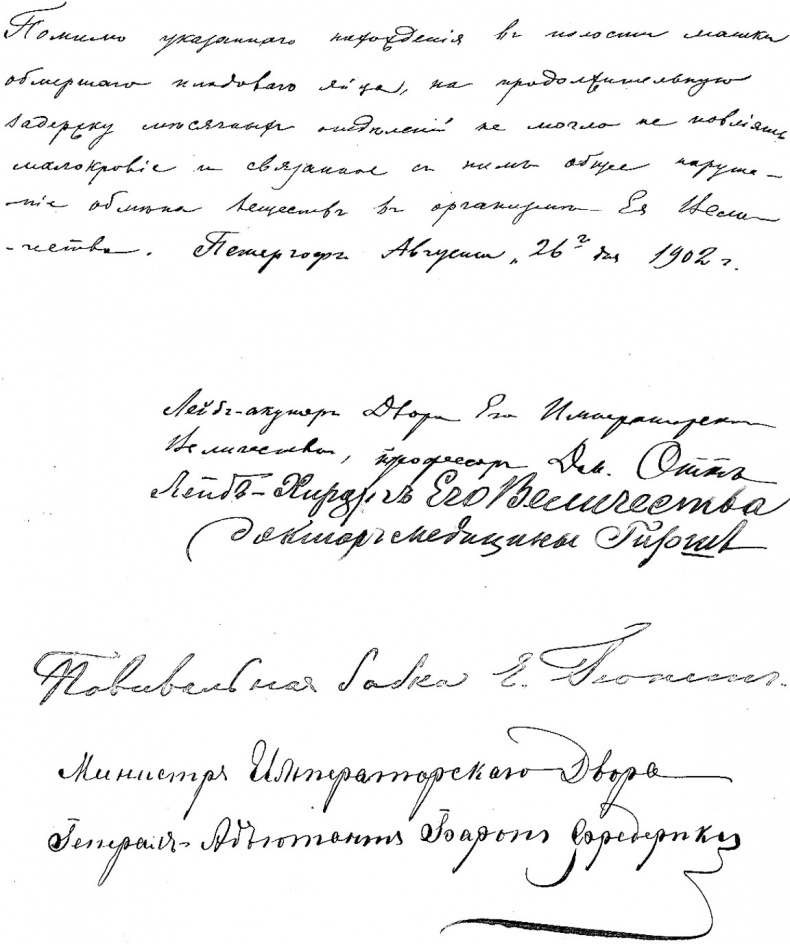 Помимо указаннаго нахожденія въ полости матки
обмершаго плодоваго яйца, на продолжительную
задержку мѣсячныхъ отдѣленій не могло не повліять
малокровіе и связанное съ нимъ общее наруше-
-ніе обмѣна веществъ въ организмѣ Ея Вели-
-чества. Петергофъ Августа „26г дня 1902 г.
Лейбъ-акушеръ Двора Его Императорскаго
Величества, профессоръ Дм. Оттъ
Лейбъ-Хирургъ Его Величества
Докторъ медицины Гиршъ
Повивальная бабка Е. Гюнстъ.
Министръ Императорскаго Двора
Генералъ-Адъютантъ Баронъ Фредериксъ